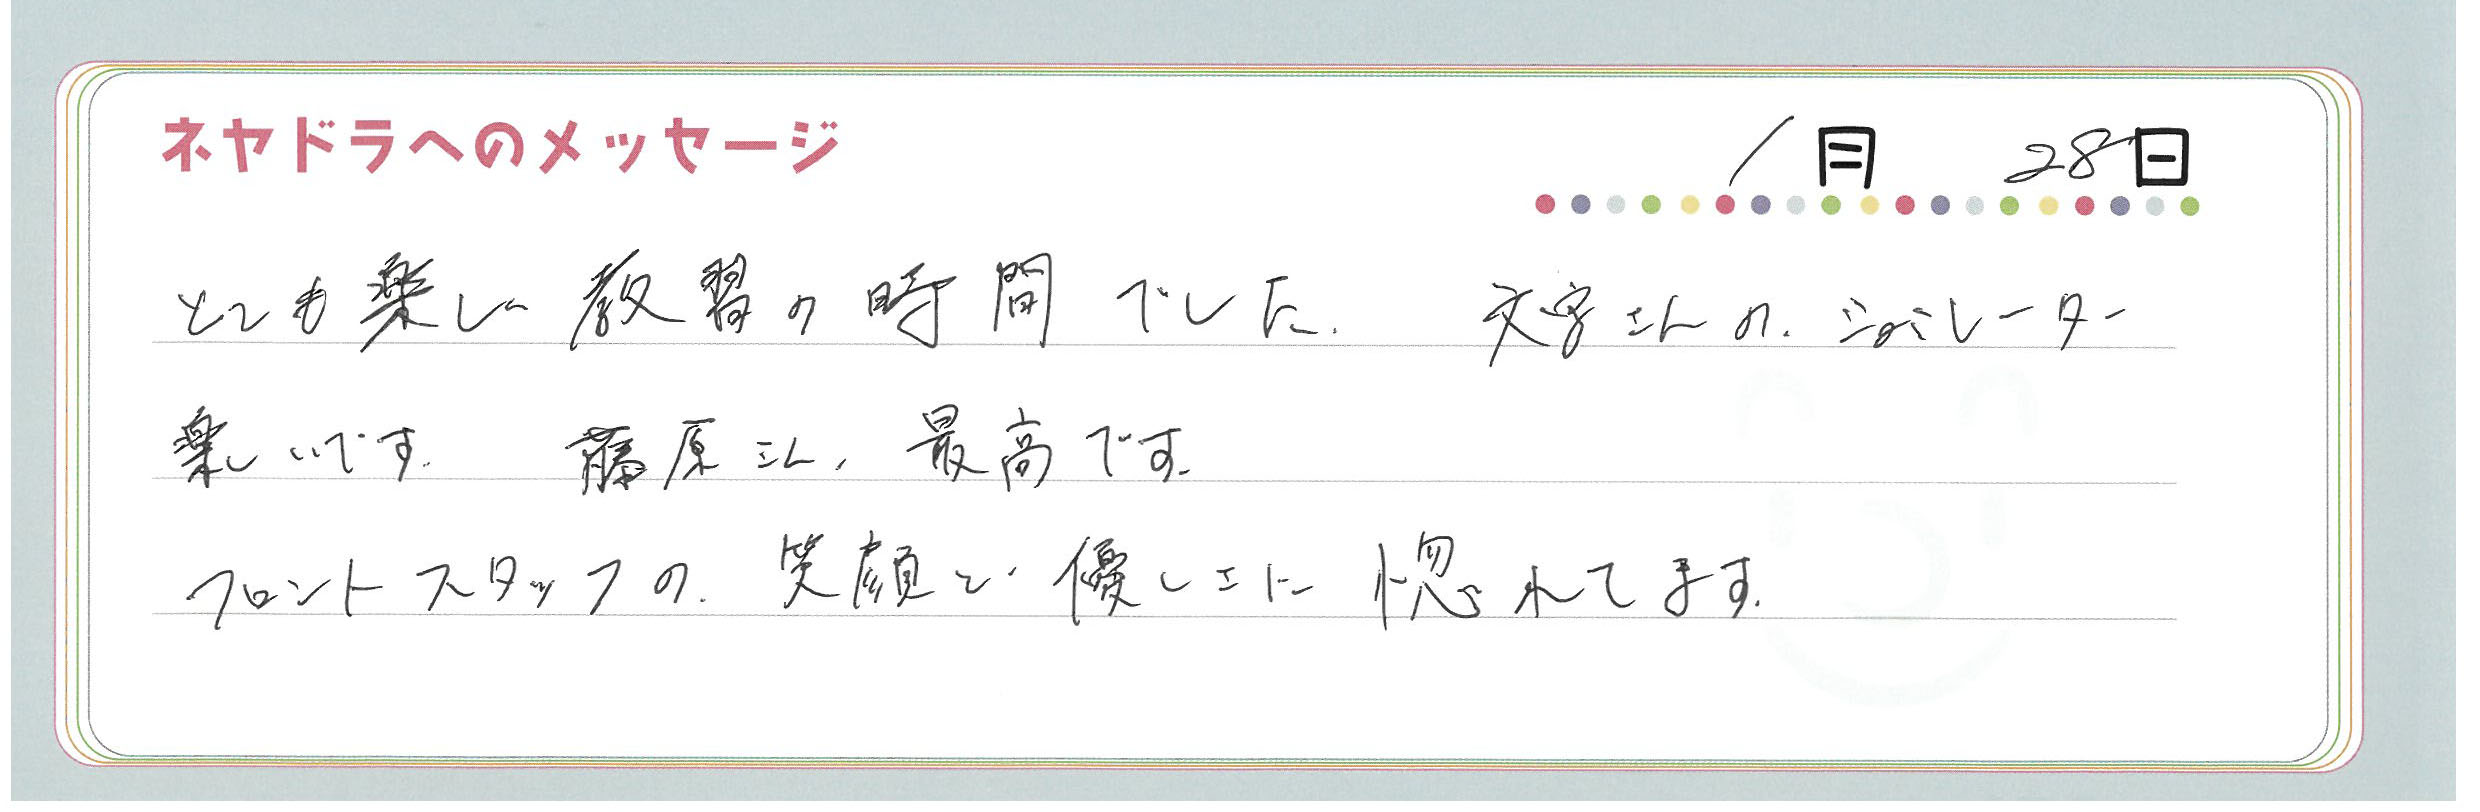 ネヤドラへのメッセージ
1月 28日
とても楽しい教習の時間でした. 文字さんの. シュミレーター
楽しいです. 藤原さん, 最高です.
フロントスタッフの. 笑顔と優しさに惚れてます.